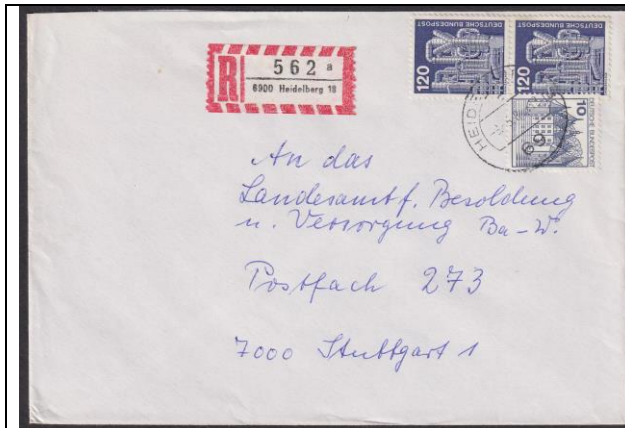 R
562 a
6900 Heidelberg 18
120
DEUTSCHE BUNDESPOST
120
DEUTSCHE BUNDESPOST
10
DEUTSCHE BUNDESPOST
HEID
69
An das
Landesamt f. Besoldung
u. Versorgung Ba-W.
Postfach 273
7000 Stuttgart 1